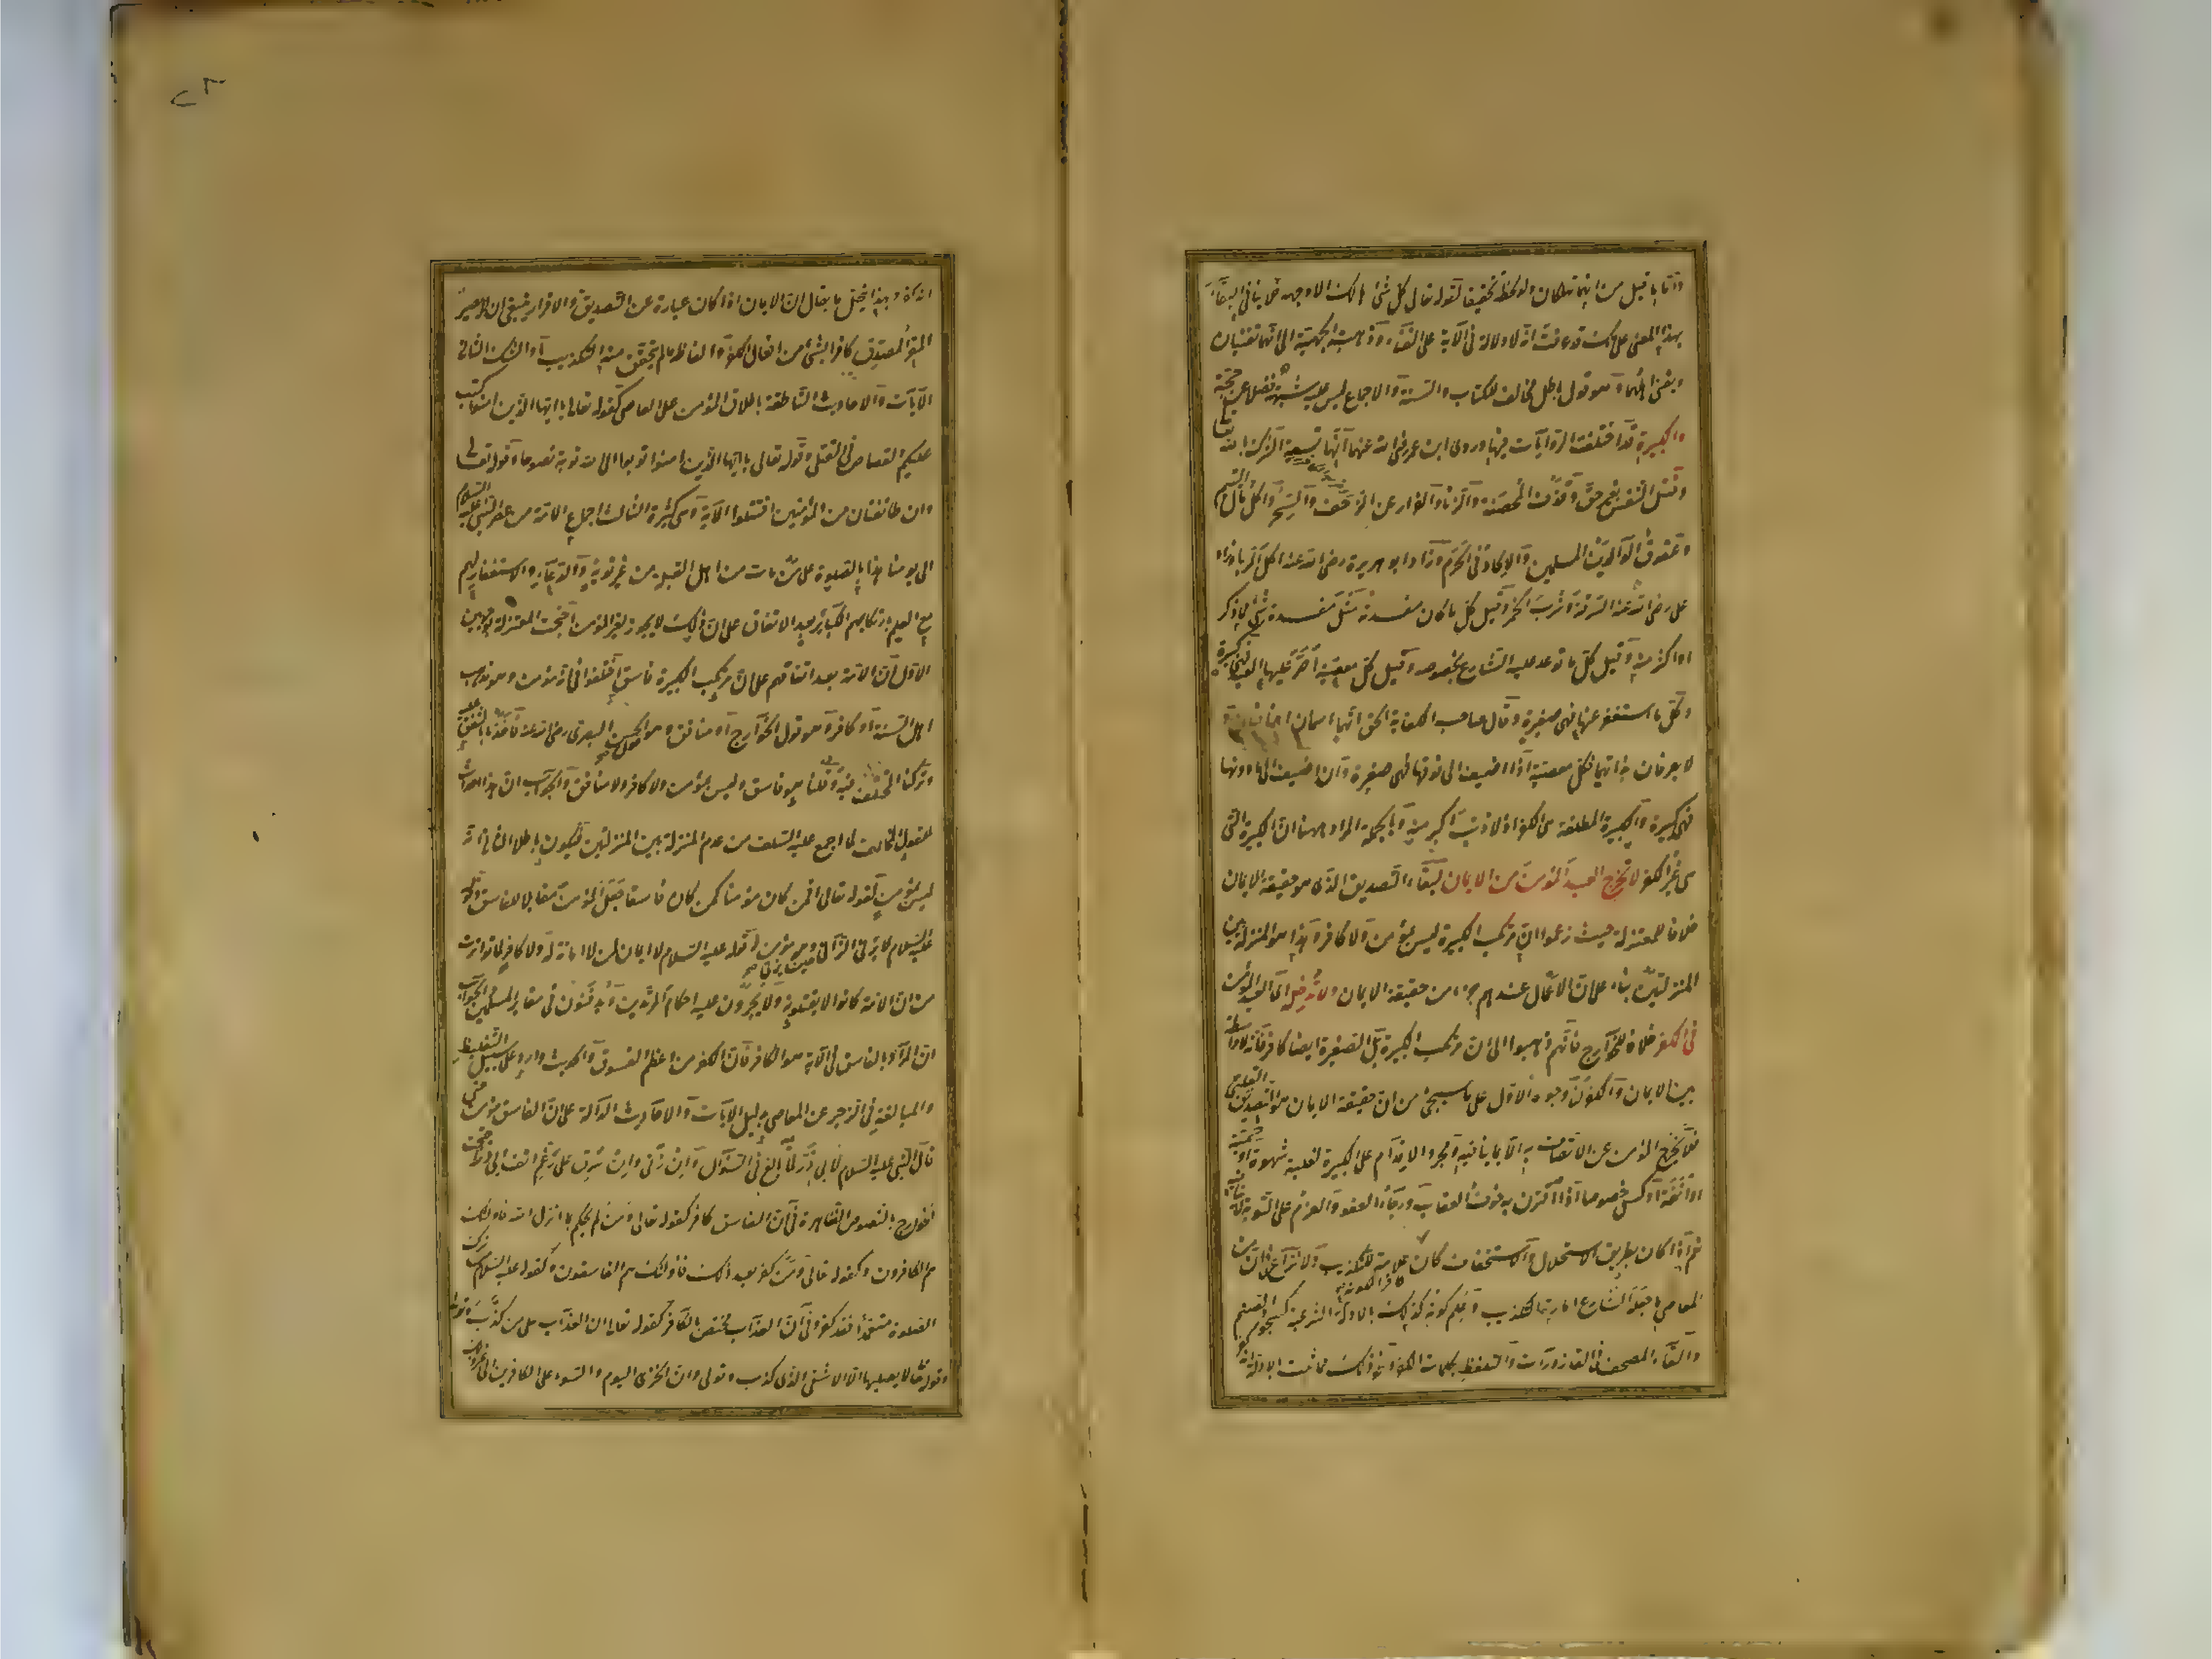 واما ما قيل من انهما تهلكان ولو لحظة تحقيقا لقوله تعالى كل شئ هالك الا وجهه فلا ينافى البقاء
بهذا المعنى على انك قد عرفت انه لا دلالة فى الآية على الفناء وذهبت الجهمية الى انهما تفنيان
ويفنى اهلهما وهو قول باطل مخالف للكتاب والسنة والاجماع ليس عليه شبهة فضلا عن حجة
والكبيرة قد اختلفت الروايات فيها وروى ابن عمر رضى الله عنهما انها تسعة الشرك بالله تعا
وقتل النفس بغير حق وقذف المحصنة والزنا والفرار عن الزحف والسحر واكل مال اليتيم
وعقوق الوالدين المسلمين والالحاد فى الحرم وزاد ابو هريرة رضى الله عنه اكل الربا وزاد
على رضى الله عنه السرقة وشرب الخمر وقيل كل ما كان مفسدته مثل مفسدة شئ مما ذكر
او اكثر منه وقيل كل ما توعد عليه الشارع بخصوصه وقيل كل معصية اصر عليها العبد فهى كبيرة
وكل ما استغفر عنها فهى صغيرة وقال صاحب الكفاية الحق انهما اسمان اضافيان
لا يعرفان بذاتيهما فكل معصية اذا اضيفت الى فوقها فهى صغيرة وان اضيفت الى ما دونها
فهى كبيرة والكبيرة المطلقة هى الكفر اذ لا ذنب اكبر منه وبالجملة المراد ههنا ان الكبيرة التى
هى غير الكفر لا تخرج العبد المؤمن من الايمان لبقاء التصديق الذى هو حقيقة الايمان
خلافا للمعتزلة حيث زعموا ان مرتكب الكبيرة ليس بمؤمن ولا كافر وهذا هو المنزلة بين
المنزلتين بناء على ان الاعمال عندهم جزء من حقيقة الايمان ولا تدخله اى العبد المؤمن
فى الكفر خلافا للخوارج فانهم ذهبوا الى ان مرتكب الكبيرة بل الصغيرة ايضا كافر وانه لا واسطة
بين الايمان والكفر لنا وجوه الاول على ما سيجئ من ان حقيقة الايمان هو التصديق القلبى
فلا يخرج المؤمن عن الاتصاف به الا بما ينافيه ومجرد الاقدام على الكبيرة لغلبة شهوة او حمية
او انفة او كسل خصوصا اذا اقترن به خوف العقاب ورجاء العفو والعزم على التوبة لا ينافيه
نعم اذا كان بطريق الاستحلال والاستخفاف كان كافرا لكونه علامة للتكذيب ولا نزاع فى ان من
المعاصى ما جعله الشارع امارة للتكذيب وعلم كونه كذلك بالادلة الشرعية كسجود الصنم
والقاء المصحف فى القاذورات والتلفظ بكلمات الكفر ونحو ذلك مما ثبت بالادلة انه
انه كفر وبهذا ينحل ما يقال ان الايمان اذا كان عبارة عن التصديق والاقرار فينبغى ان لا يصير
المقر المصدق كافرا بشئ من افعال الكفر والفاظه ما لم يتحقق منه التكذيب او الشك الثانى
الآيات والاحاديث الناطقة باطلاق المؤمن على العاصى كقوله تعالى يا ايها الذين امنوا كتب
عليكم القصاص فى القتلى وقوله تعالى يا ايها الذين امنوا توبوا الى الله توبة نصوحا وقوله تعالى
وان طائفتان من المؤمنين اقتتلوا الآية وهى كثيرة الثالث اجماع الامة من عصر النبى عليه السلام
الى يومنا هذا بالصلوة على من مات من اهل القبلة من غير توبة والدعاء والاستغفار لهم
مع العلم بارتكابهم الكبائر بعد الاتفاق على ان ذلك لا يجوز لغير المؤمن احتجت المعتزلة بوجهين
الاول ان الامة بعد اتفاقهم على ان مرتكب الكبيرة فاسق اختلفوا فى انه مؤمن وهو مذهب
اهل السنة او كافر وهو قول الخوارج او منافق وهو قول الحسن البصرى رضى الله عنه فاخذنا بالمتفق عليه
وتركنا المختلف فيه وقلنا هو فاسق وليس بمؤمن ولا كافر ولا منافق والجواب ان هذا احداث
للقول المخالف لما اجمع عليه السلف من عدم المنزلة بين المنزلتين فيكون باطلا الثانى انه
ليس بمؤمن لقوله تعالى افمن كان مؤمنا كمن كان فاسقا جعل المؤمن مقابلا للفاسق وقوله
عليه السلام لا يزنى الزانى حين يزنى وهو مؤمن وقوله عليه السلام لا ايمان لمن لا امانة له ولا كافر لما تواترت
من ان الامة كانوا لا يقتلونه ولا يجرون عليه احكام المرتدين ويدفنون فى مقابر المسلمين والجواب
ان المراد بالفاسق فى الآية هو الكافر فان الكفر من اعظم الفسوق والحديث وارد على سبيل التغليظ
والمبالغة فى الزجر عن المعاصى بدليل الآيات والاحاديث الدالة على ان الفاسق مؤمن حتى
قال النبى عليه السلام لابى ذر لما بالغ فى السؤال وان زنى وان سرق على رغم انف ابى ذر احتجت
الخوارج بالنصوص الظاهرة فى ان الفاسق كافر كقوله تعالى ومن لم يحكم بما انزل الله فاولئك
هم الكافرون وكقوله تعالى ومن كفر بعد ذلك فاولئك هم الفاسقون وكقوله عليه السلام من ترك
الصلوة متعمدا فقد كفر وفى ان العذاب مختص بالكافر كقوله تعالى ان العذاب على من كذب وتولى
وقوله تعالى لا يصليها الا الاشقى الذى كذب وتولى وان الخزى اليوم والسوء على الكافرين الى غير ذلك